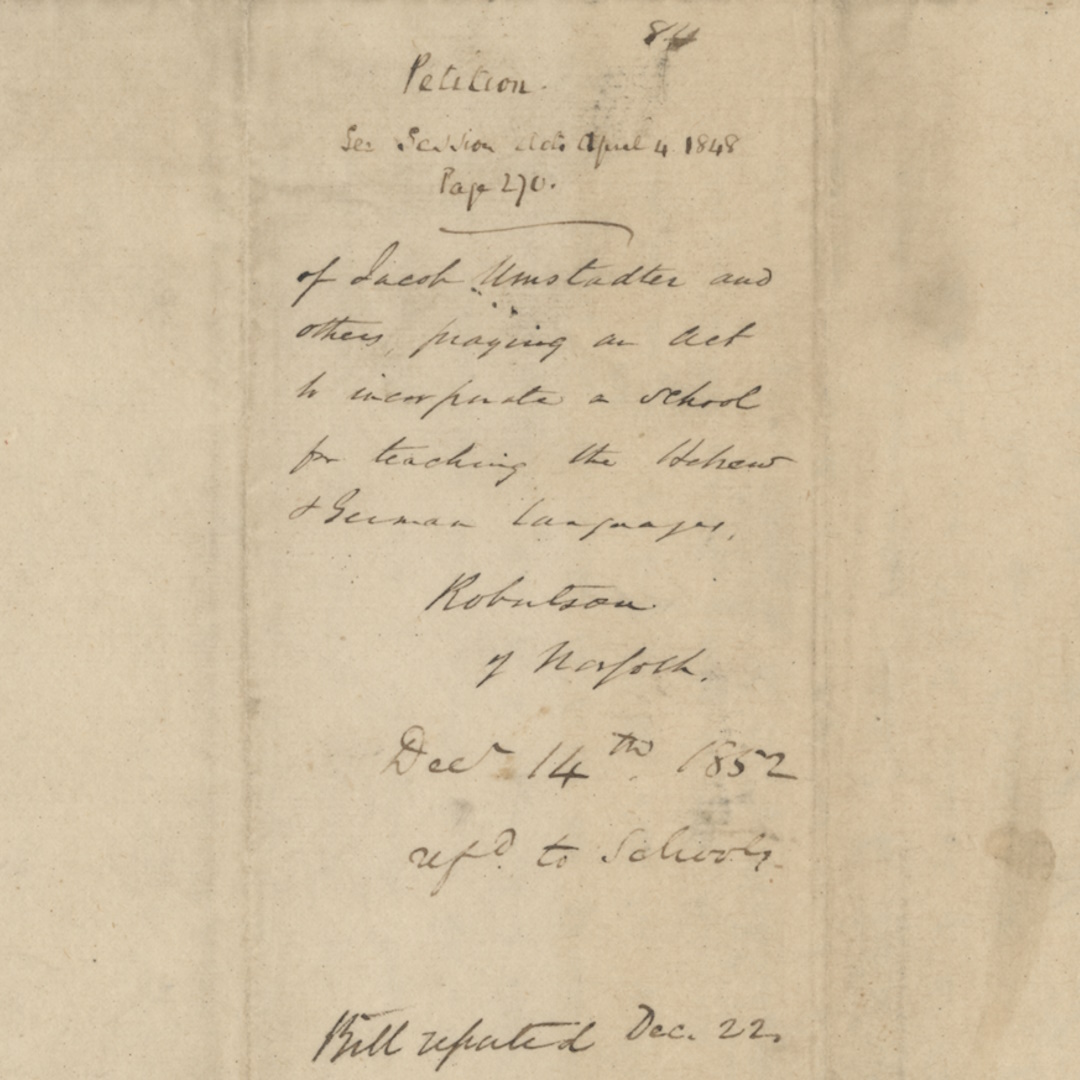 84
Petition.
See Session acts April 4 1848
Page 270.
of Jacob Umstadter and
others, praying an act
to incorporate a school
for teaching the Hebrew
& German languages.
Robertson
of Norfolk.
Decr 14th. 1852
refd. to Schools.
Bill reported Dec. 22.